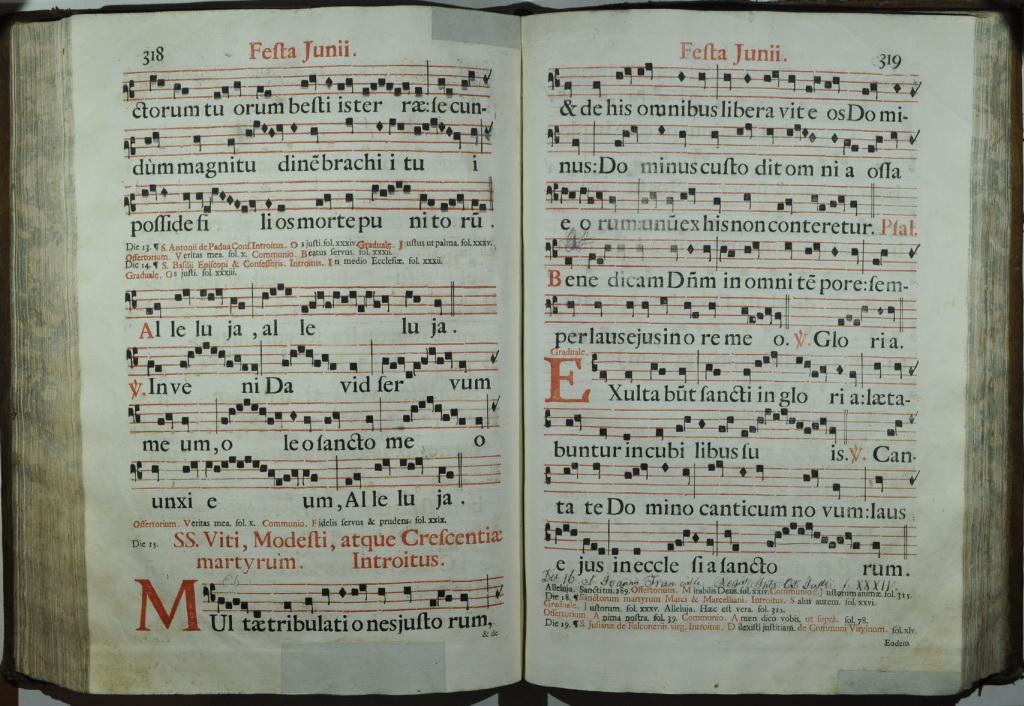 318
Festa Junii.
ctorum tu orum besti is ter ræ: se cun-
dùm magnitu dinē brachi i tu i
posside fi li os morte pu ni to rū.
Die 13. ¶ S. Antonii de Padua Conf. Introitus. Os justi. fol. xxxiv. Graduale. Justus ut palma. fol. xxxv.
Offertorium. Veritas mea. fol. x. Communio. Beatus servus. fol. xxxii.
Die 14. ¶ S. Basilii Episcopi & Confessoris. Introitus. In medio Ecclesiæ. fol. xxxii.
Graduale. Os justi. fol. xxxiii.
Al le lu ja, al le lu ja.
℣. In ve ni Da vid ser vum
me um, o le o sancto me o
unxi e um, Al le lu ja.
Offertorium. Veritas mea. fol. x. Communio. Fidelis servus & prudens. fol. xxix.
Die 15. SS. Viti, Modesti, atque Crescentiæ
martyrum. Introitus.
MUl tæ tribulati o nes justo rum,
& de
Festa Junii.
319
& de his omnibus libera vit e os Do mi-
nus: Do minus custo dit om ni a ossa
e o rum: unū ex his non conteretur. Psal.
Bene dicam Dñm in omni tē pore: sem-
per laus ejus in o re me o. ℣. Glo ri a.
Graduale.
EXulta būt sancti in glo ri a: læta-
buntur in cubi libus su is. ℣. Can-
ta te Do mino canticum no vum: laus
e jus in eccle si a sancto rum.
Die 16. S. Joannis Fran
Alleluja. Sancti tui. 289. Offertorium. Mirabilis Deus. fol. xxiv. Communio. Justorum animæ. fol. 315.
Die 18. ¶ Sanctorum martyrum Marci & Marcelliani. Introitus. Salus autem. fol. xxvi.
Graduale. Justorum. fol. xxxv. Alleluja. Hæc est vera. fol. 312.
Offertorium. Anima nostra. fol. 39. Communio. Amen dico vobis. ut suprà. fol. 78.
Die 19. ¶ S. Julianæ de Falconeriis virg. Introitus. Dilexisti justitiam. de Communi Virginum. fol. xlv.
Eodem